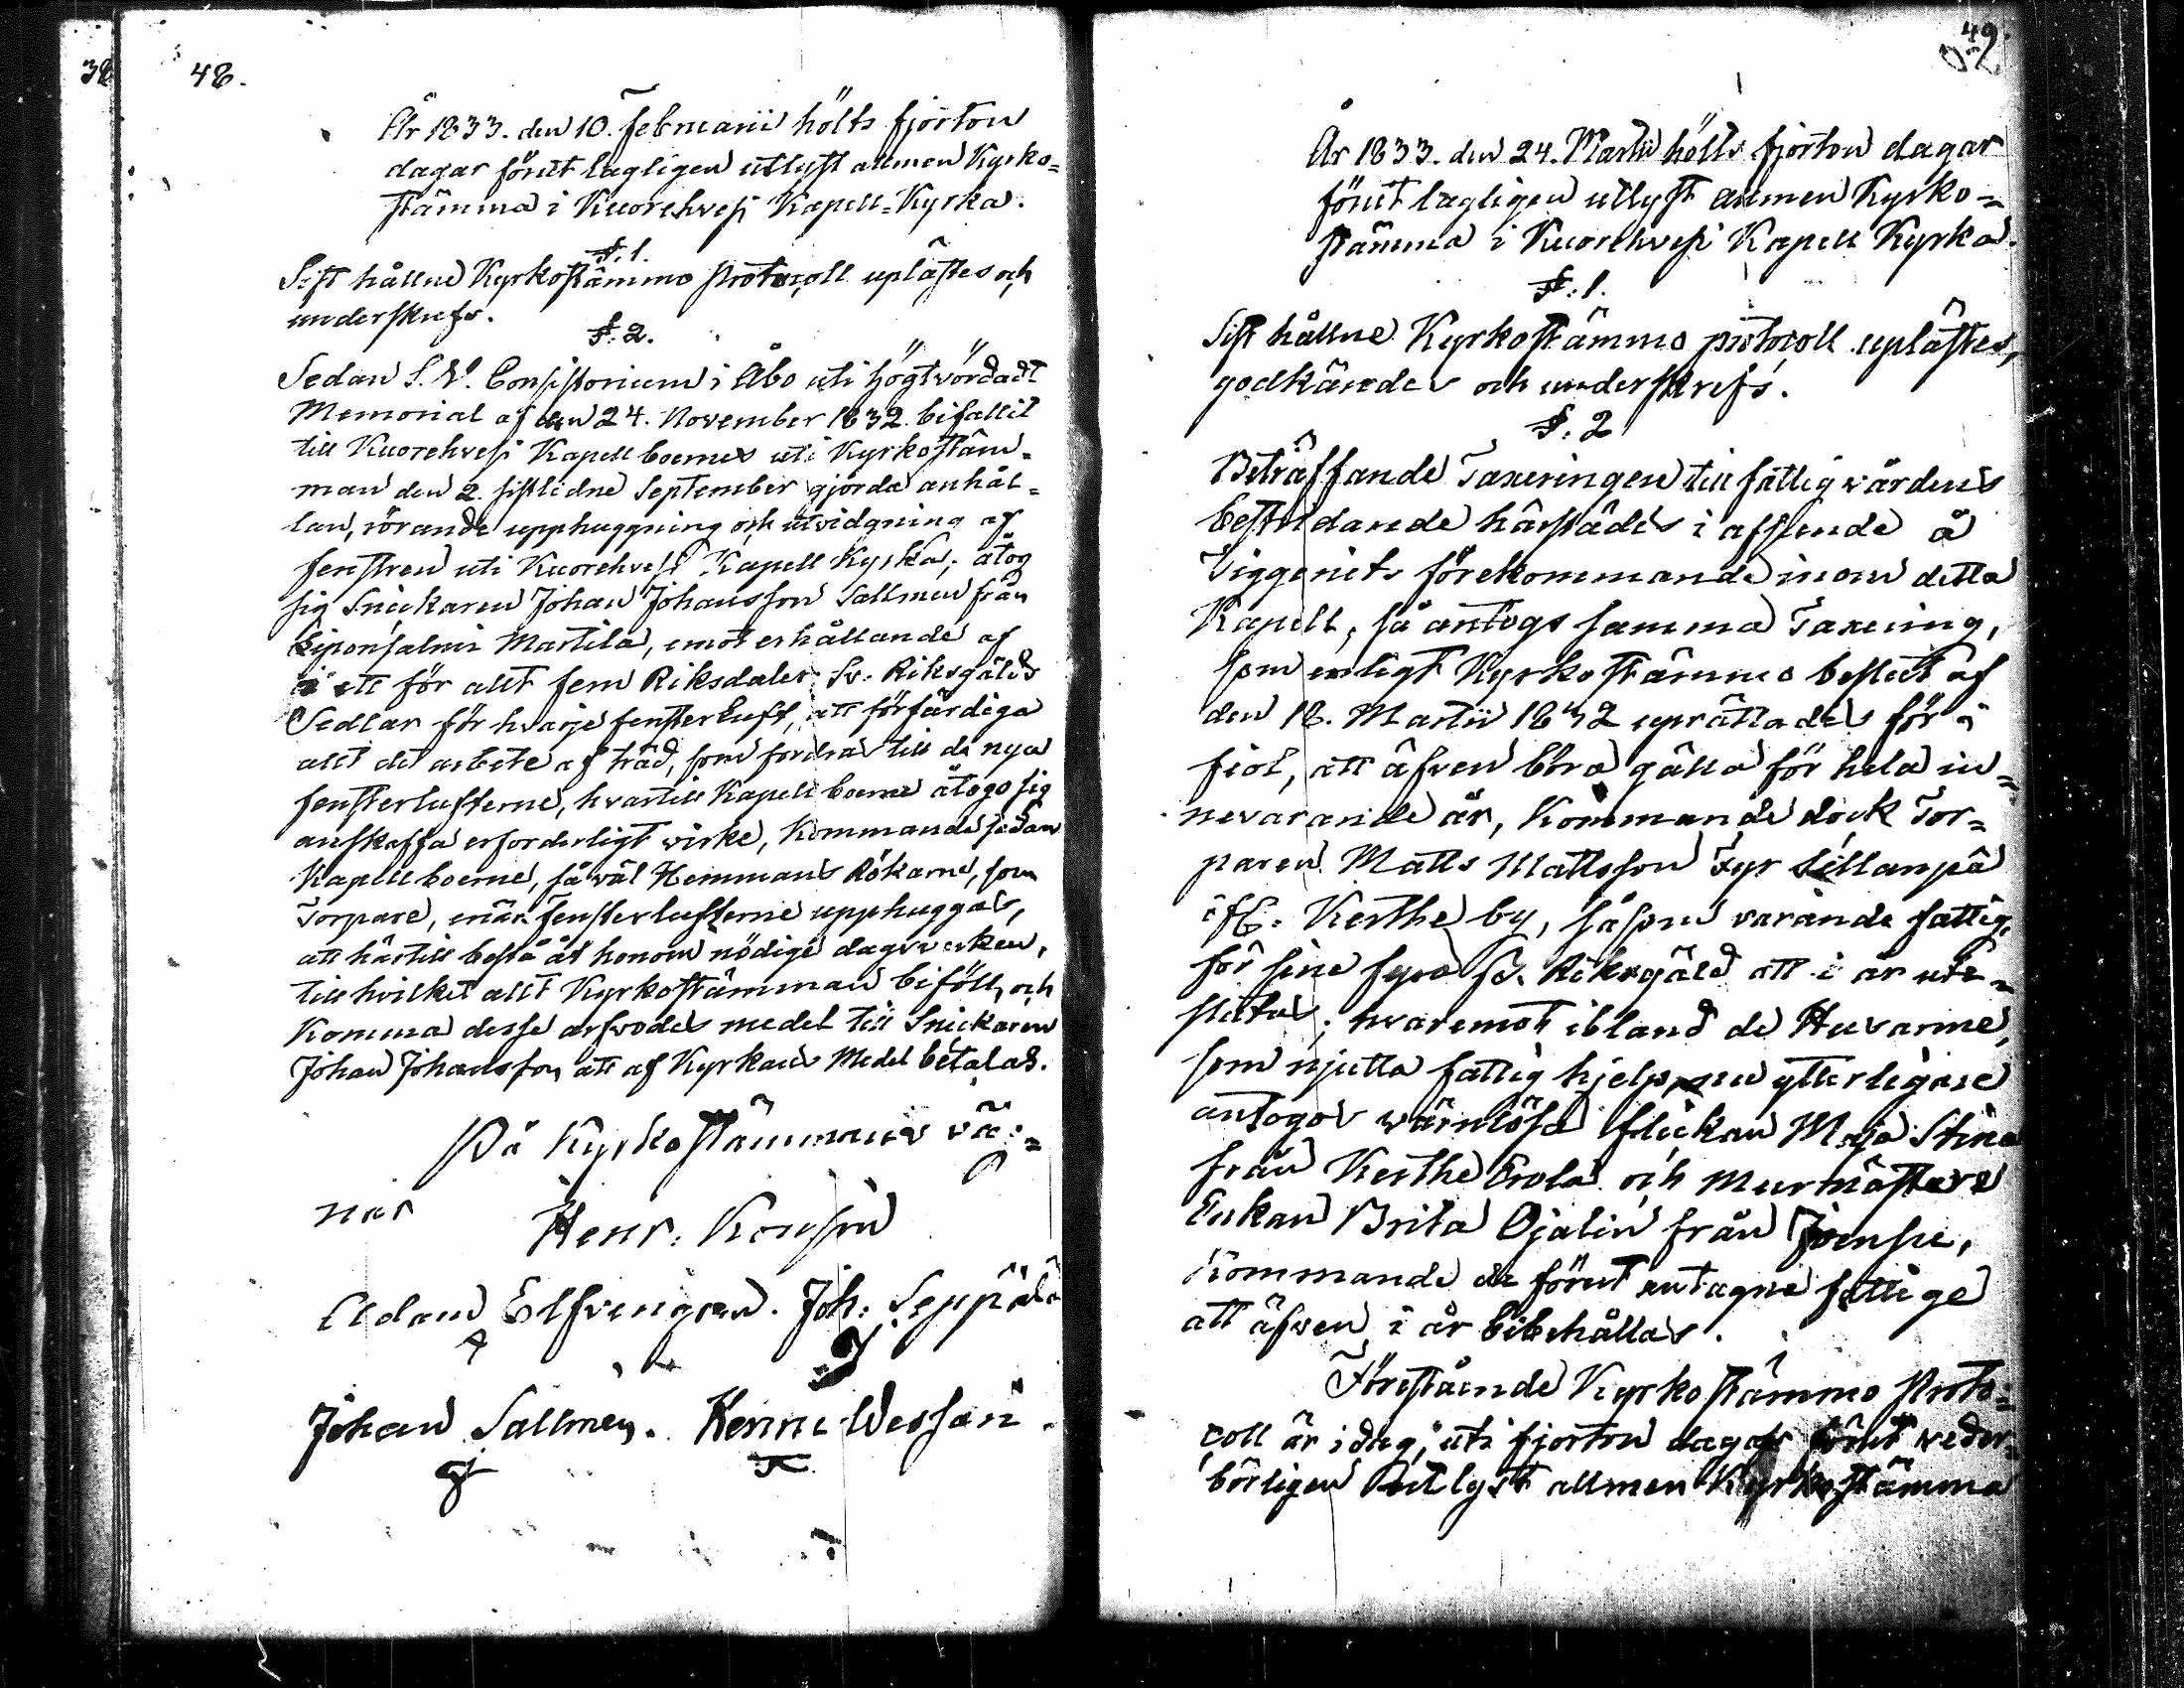 38
48.
År 1833. den 10. Februarii hölts fjorton
dagar förut lagligen utlyst allmen Kyrko=
stämma i Kuorehvesi Kapell-Kyrka.
§. 1.
Sist hållne Kyrkostämmo protocoll uplästes och
underskrefs.
§. 2.
Sedan S. V. Consistorium i Åbo uti högtvördadt
Memorial af den 24. November 1832. bifallit
till Kuorehvesi Kapell boernes uti Kyrkostäm-
man den 2. sistlidne September gjorda anhål-
lan, rörande upphuggning och utvidgning af
fenstren uti Kuorehvesi Kapell Kyrka; åtog
sig Snickaren Johan Johansson Sallmen från
Eiponsalmi Martila, emot erhållande af
i ett för allt fem Riksdaler Sv. Riksgälds
Sedlar för hvarje fensterluft, att förfärdiga
allt det arbete af träd, som fordras till de nya
fensterlufterne, hvartill Kapell boerne åtogo sig
anskaffa erforderligt wirke, Kommande sedan
Kapell boerne, så väl Hemmans Rökarne, som
Torpare, enär fensterlufterne upphuggas,
att härtill bestå åt honom nödige dagsverken,
till hvilket allt Kyrkostämman biföll, och
Komma desse arfvodes medel till Snickaren
Johan Johansson att af Kyrkans Medel betalas.
På Kyrkostämmans väg=
nar
Henr: Konsin
Adam Elfvengren. Joh: Seppälä
Johan Sallmen. Henric Wessari.
49.
År 1833. den 24. Martii hölts fjorton dagar
förut lagligen utlyst allmen Kyrko=
stämma i Kuorehvesi Kapell Kyrka.
§: 1.
Sist hållne Kyrkostämmo protocoll uplästes,
godkändes och underskrefs.
§: 2
Beträffande Taxeringen till fattigvårdens
bestridande härstädes i afseende å
Tiggeriets förekommande inom detta
Kapell, så antogs samma Taxering,
som enligt Kyrkostämmo beslut af
den 18. Martii 1832 uprättades för i
fiol, att äfven böra gälla för hela in=
nevarande år, Kommande dock Tor=
paren Matts Mattsson Fyr Sillanpä
i Kerthe by, såsom varande fattig,
för sine fyra Riksgäld att i år ute=
sluta; hvaremot ibland de Huvarne,
som njuta fattig hjelp, nu ytterligare
antogos wärnlösa flickan Maja Stina
från Kerthe Erola och Murmästare
Enkan Brita Ojalin från Joensu,
Kommande de förut antagne fattige
att äfven i år bibehållas.
Förestående Kyrkostämmo Proto=
coll är i dag, uti fjorton dagar förut veder=
börligen utlyst allmen Kyrkostämma